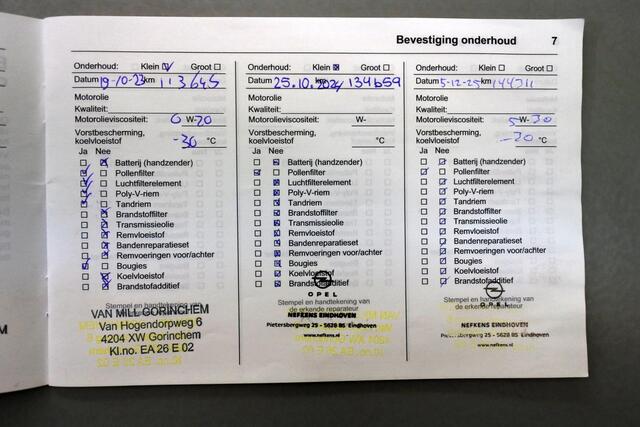 Bevestiging onderhoud 7
Onderhoud: Klein Groot
Datum 19-10-23 km 113645
Motorolie
Kwaliteit:
Motorolieviscositeit: 0 W-20
Vorstbescherming,
koelvloeistof -30 °C
Ja Nee
Batterij (handzender)
Pollenfilter
Luchtfilterelement
Poly-V-riem
Tandriem
Brandstoffilter
Transmissieolie
Remvloeistof
Bandenreparatieset
Remvoeringen voor/achter
Bougies
Koelvloeistof
Brandstofadditief
Stempel en handtekening van
VAN MILL GORINCHEM
Van Hogendorpweg 6
4204 XW Gorinchem
Kl.no. EA 26 E 02
Onderhoud: Klein Groot
Datum 25.10.2024 km 134659
Motorolie
Kwaliteit:
Motorolieviscositeit: W-
Vorstbescherming,
koelvloeistof °C
Ja Nee
Batterij (handzender)
Pollenfilter
Luchtfilterelement
Poly-V-riem
Tandriem
Brandstoffilter
Transmissieolie
Remvloeistof
Bandenreparatieset
Remvoeringen voor/achter
Bougies
Koelvloeistof
Brandstofadditief
OPEL
Stempel en handtekening van
de erkende reparateur
NEFKENS EINDHOVEN
Pietersbergweg 25 - 5628 BS Eindhoven
www.nefkens.nl
Onderhoud: Klein Groot
Datum 5-12-25 km 144311
Motorolie
Kwaliteit:
Motorolieviscositeit: 5 W-30
Vorstbescherming,
koelvloeistof -30 °C
Ja Nee
Batterij (handzender)
Pollenfilter
Luchtfilterelement
Poly-V-riem
Tandriem
Brandstoffilter
Transmissieolie
Remvloeistof
Bandenreparatieset
Remvoeringen voor/achter
Bougies
Koelvloeistof
Brandstofadditief
OPEL
Stempel en handtekening van
de erkende reparateur
NEFKENS EINDHOVEN
Pietersbergweg 25 - 5628 BS Eindhoven
www.nefkens.nl